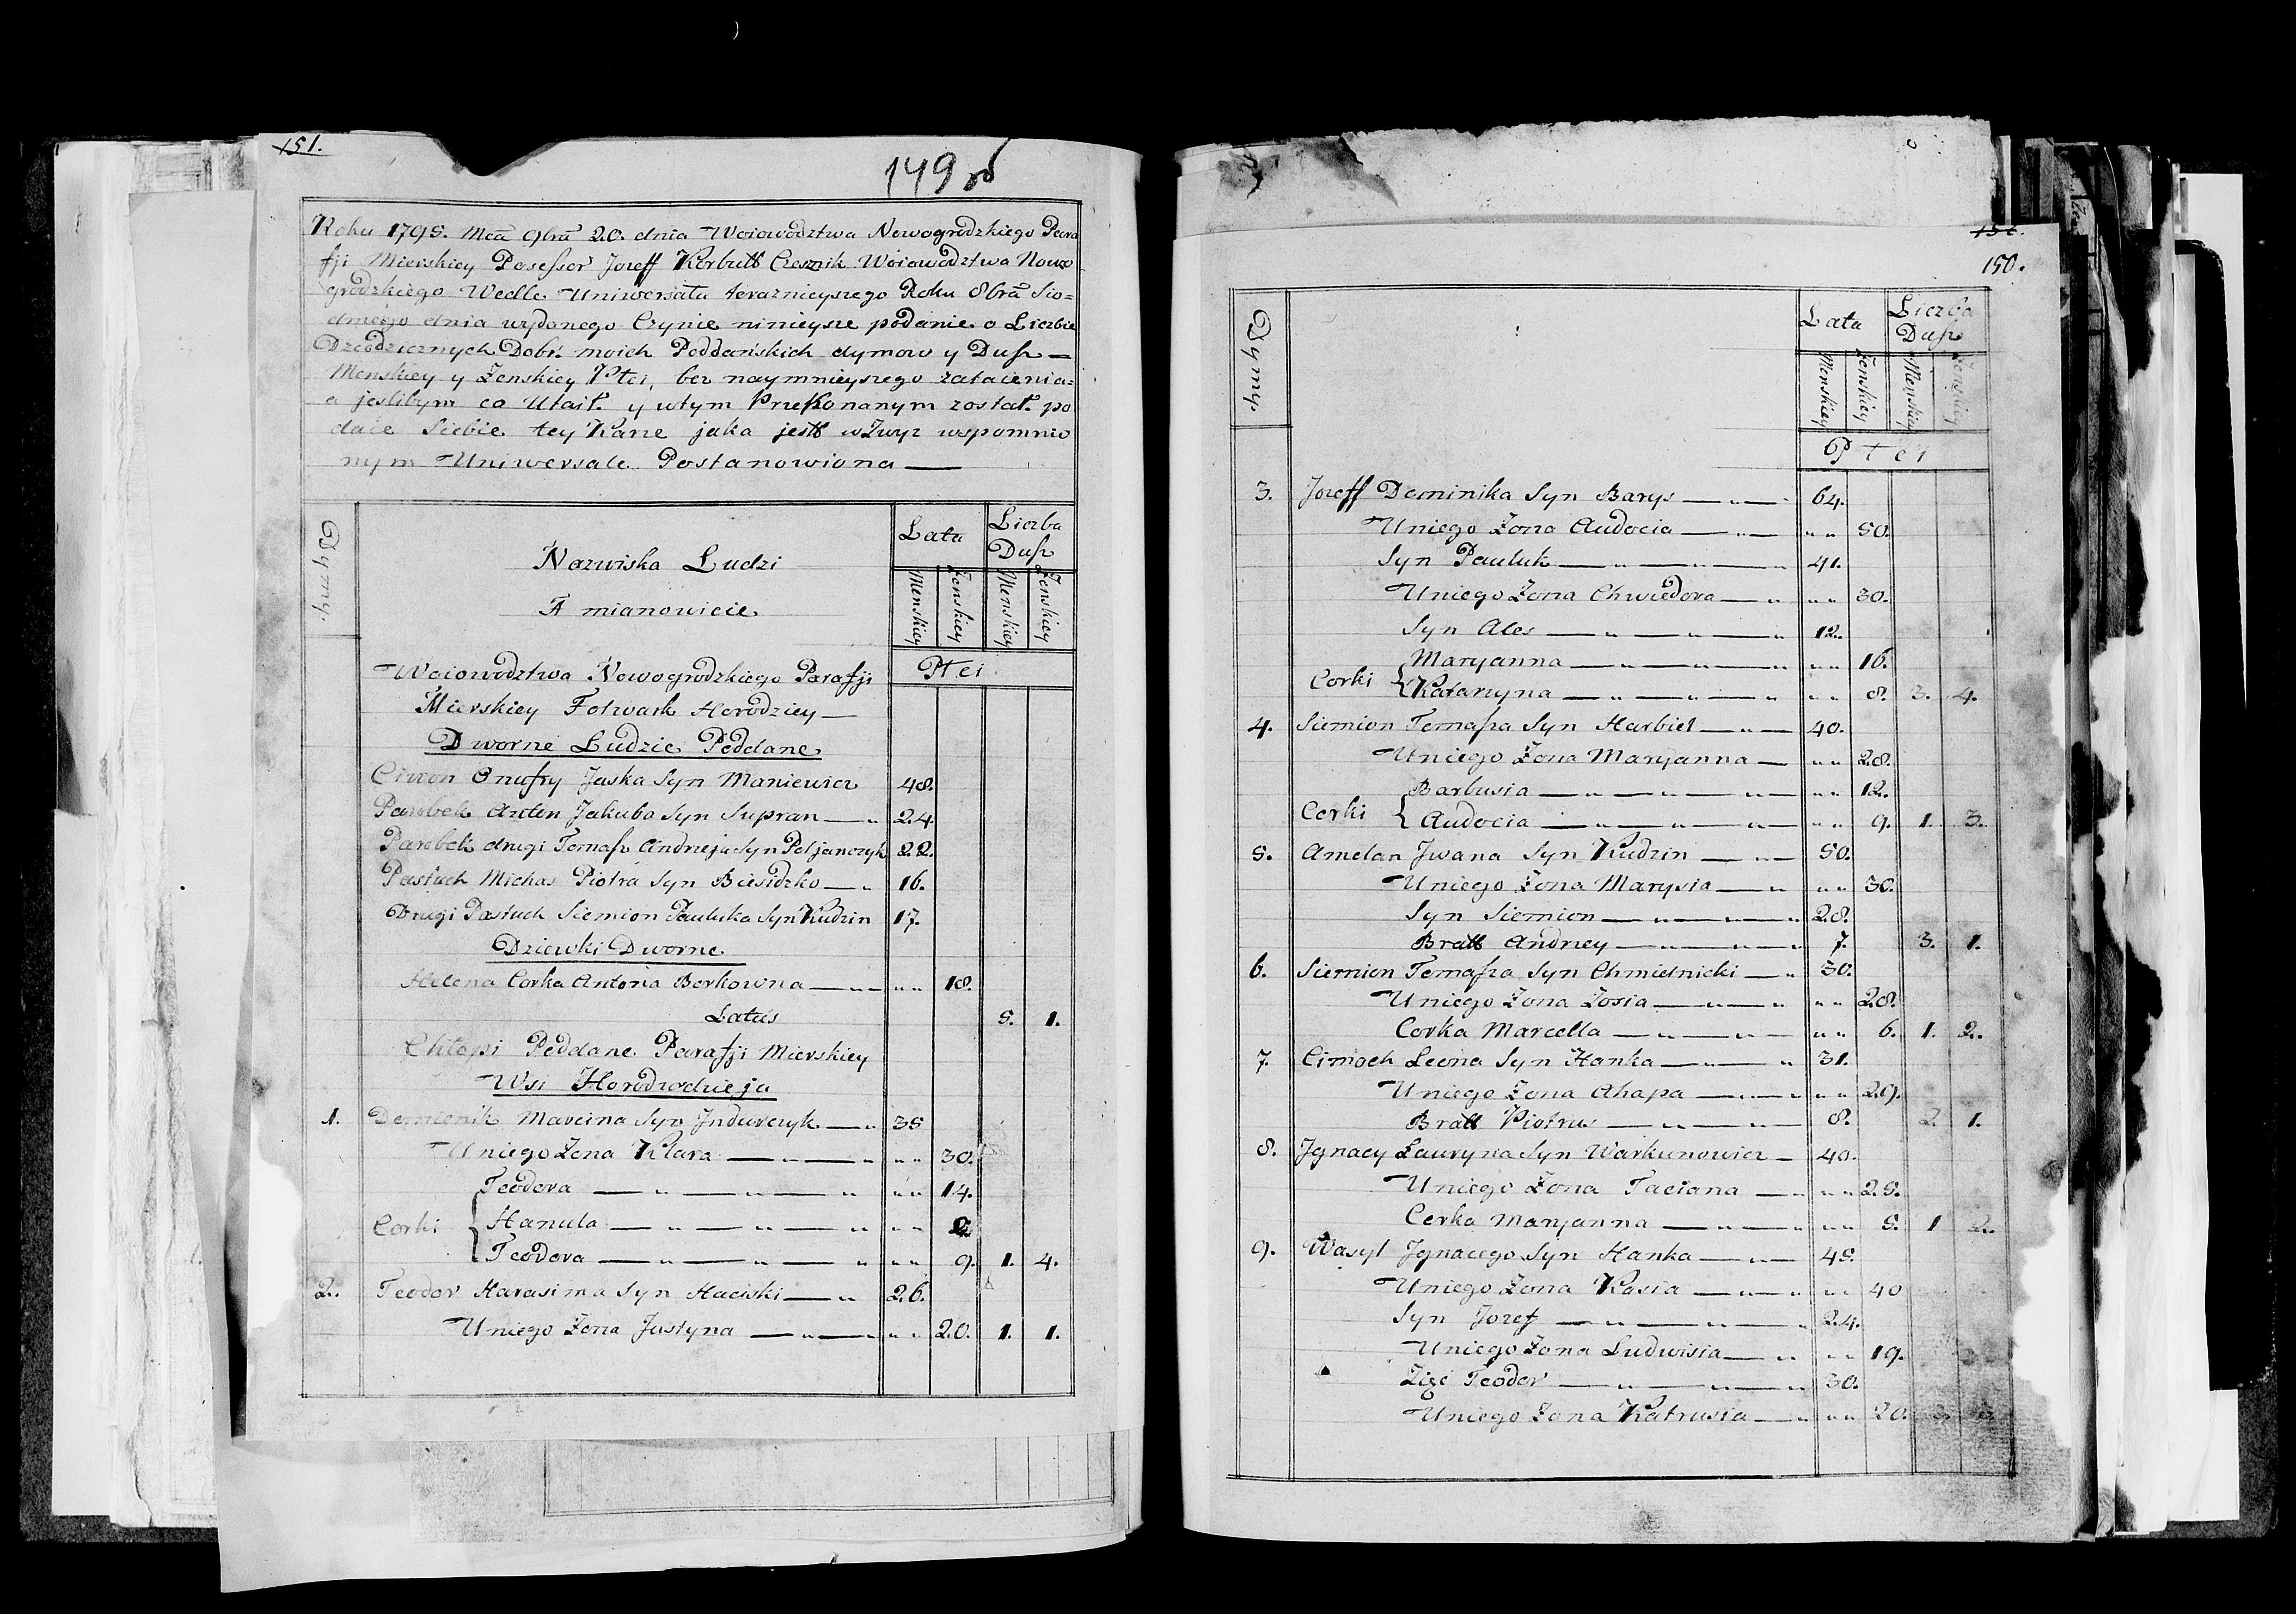 151.
149 об
Roku 1795. Mca 9bra 20. dnia Woiowodztwa Nowogrodzkiego Para
fji Mierskiey Posessor Jozeff Korbutt Czesznik Woiowodztwa Nowo
grodzkiego Wedle Uniwersatu teraznieyszego Roku 8bra Sio=
dmego dnia wydanego Czynie ninieysze podanie o Liczbie
Dziedzicznych Dobr moich Poddańskich dymow y Dusz —
Menskiey y Zenskiey Ptci, bez naymnieyszego zataienia=
a jeslibym co Utait. y wtym Przekonanym zostat. po
daie Siebie tey Karze jaka jestt wZwyz wspomnio
nym Uniwersale Postanowiona —
Dymy.
Nazwiska Ludzi
A mianowicie
Lata
Liczba Dusz
Menskiey Zenskiey Menskiey Zenskiey
Ptci
Woiowodztwa Nowogrodzkiego Parafji
Mierskiey Folwark Horodziey —
Dworne Ludzie Poddane
Ciwon Onufry Jaska Syn Maniewicz 48.
Parobek Anton Jakuba Syn Supran — „ 24.
Parobek drugi Tomasz Andrieja Syn Poljanczyk 22.
Pastuch Michas Piotra Syn Biesidzko — „ 16.
Drugi Pastuch Siemion Pauluka Syn Kudzin 17.
Dziewki Dworne
Helena Corka Antona Borkowna — „ — „ „ 18.
Latus 5. 1.
Chłopi Poddane Parafji Mierskiey
Wsi Horodzodzieja
1. Demienik Marcina Syn Jndurczyk — „ 35
Uniego Zona Klara — „ — „ „ „ 30.
Teodora — „ — „ — „ „ „ 14.
Corki { Hanula — „ — „ — „ „ „
Teodora — „ — „ — „ „ „ 9. 1. 4.
2. Teodor Harasima Syn Haciski — „ 26.
Uniego Zona Justyna — „ — „ „ „ 20. 1. 1.
150.
Dymy.
Lata
Liczba Dusz
Menskiey Zenskiey Menskiey Zenskiey
Ptci
3. Jozeff Dominika Syn Barys — „ — „ 64.
Uniego Zona Audocia — „ — „ „ 50.
Syn Pauluk — „ — „ — „ 41.
Uniego Zona Chwiedora — „ „ „ 30.
Syn Ales — „ — „ — „ 12.
Maryanna — „ — „ — „ „ „ 16.
Corki { Katarzyna — „ — „ — „ „ „ 8. 3. 4.
4. Siemion Tomasza Syn Harbiel — „ — 40.
Uniego Zona Maryanna — „ „ 28.
Barbusia — „ — „ — „ — „ „ 12.
Corki { Audocia — „ — „ — „ — „ „ 9. 1. 3.
5. Amelan Jwana Syn Kudzin — „ — 50.
Uniego Zona Marysia — „ „ „ 30.
Syn Siemion — „ — „ — „ 28.
Bratt Andriey — „ — „ — „ 7. 3. 1.
6. Siemion Tomasza Syn Chmielnicki — „ 30.
Uniego Zona Zosia — „ — „ „ „ 28.
Corka Marcella — „ — „ — „ „ 6. 1. 2.
7. Cimoch Leona Syn Hanka — „ — „ 31.
Uniego Zona Ahapa — „ — „ „ „ 29.
Bratt Piotrus — „ — „ — 8. 2. 1.
8. Jgnacy Lauryna Syn Warkunowicz — 40.
Uniego Zona Taciana — „ „ „ 25.
Corka Maryanna — „ — „ „ „ 5. 1 2.
9. Wasyl Jgnacego Syn Hanka — „ — 45.
Uniego Zona Kasia — „ — „ „ „ 40
Syn Jozef — „ — „ — „ 24.
Uniego Zona Ludwisia — „ „ „ 19.
Zięć Teodor — „ — „ — „ 30.
Uniego Zona Katrusia — „ „ „ 20.